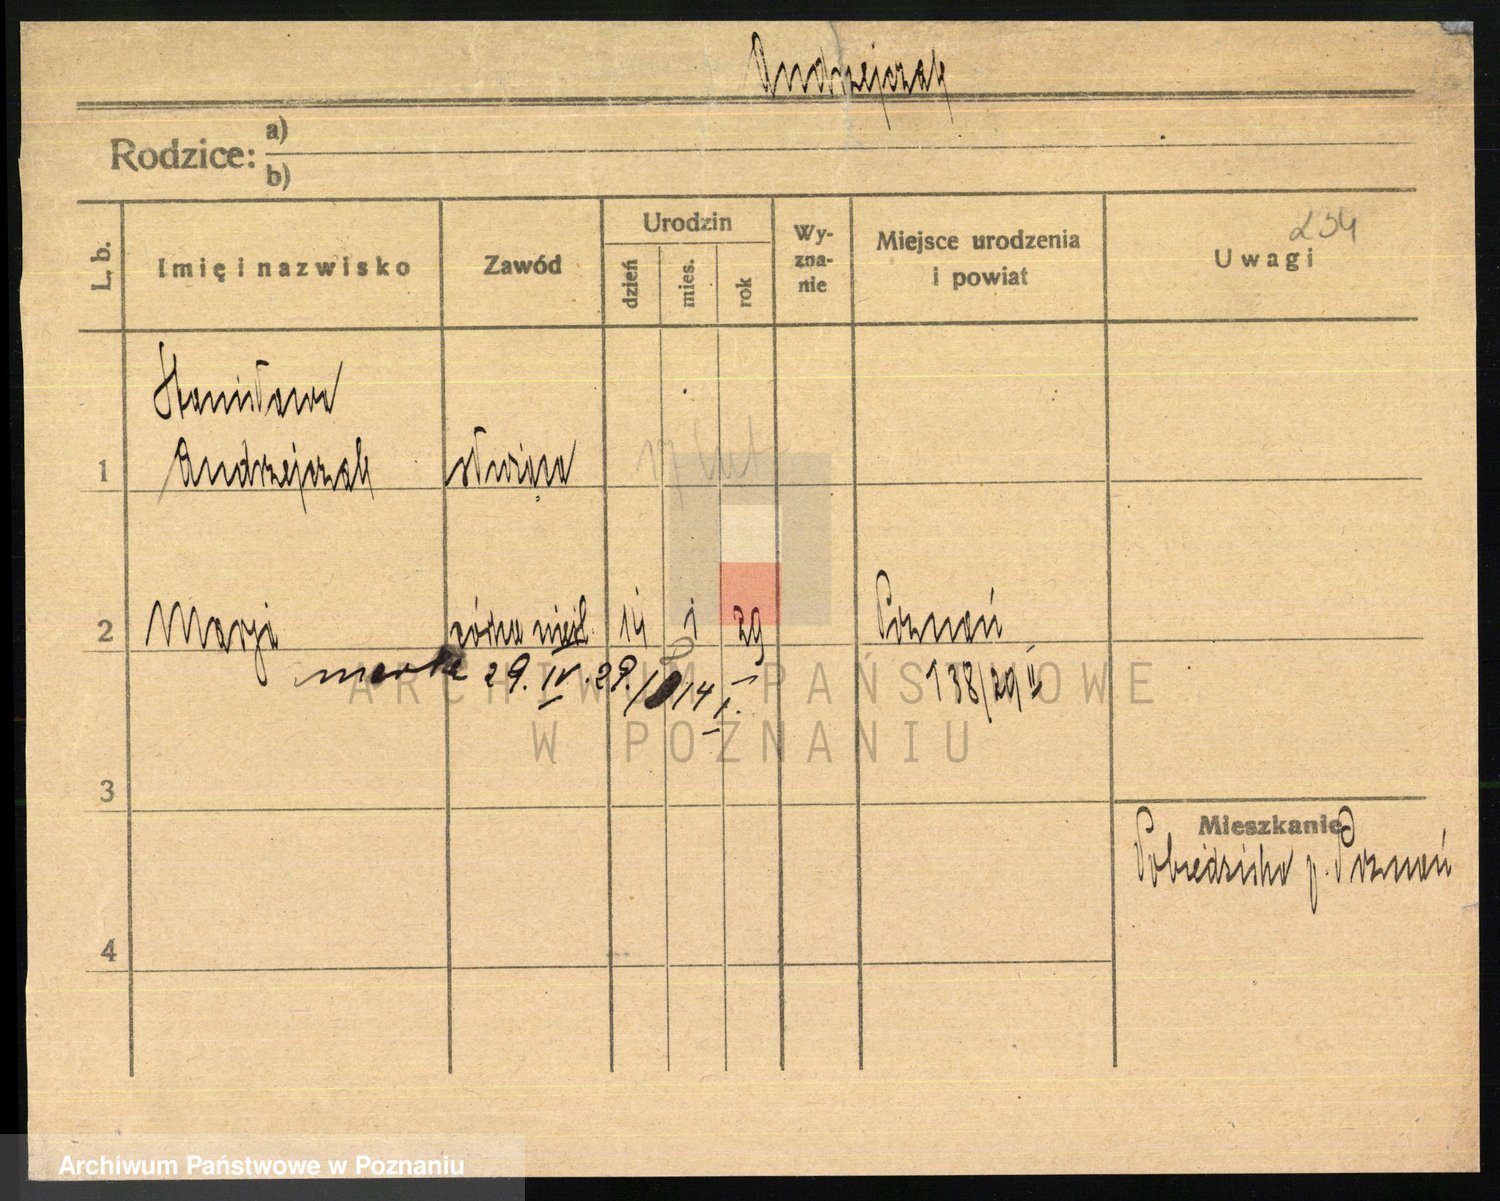 Andrzejczak
Rodzice: a)
b)
234
L. b. Imię i nazwisko Zawód Urodzin Wy-zna-nie Miejsce urodzenia i powiat Uwagi
dzień mies. rok
Stanisława
1 Andrzejczak służąca
17 lut
2 Marja córka nieśl. 14 1 29 Poznań
marła 29.IV.29. 14 I. 138/29 II
3
Mieszkanie
Pobiedziska p. Poznań
4
ARCHIWUM PAŃSTWOWE
W POZNANIU
Archiwum Państwowe w Poznaniu